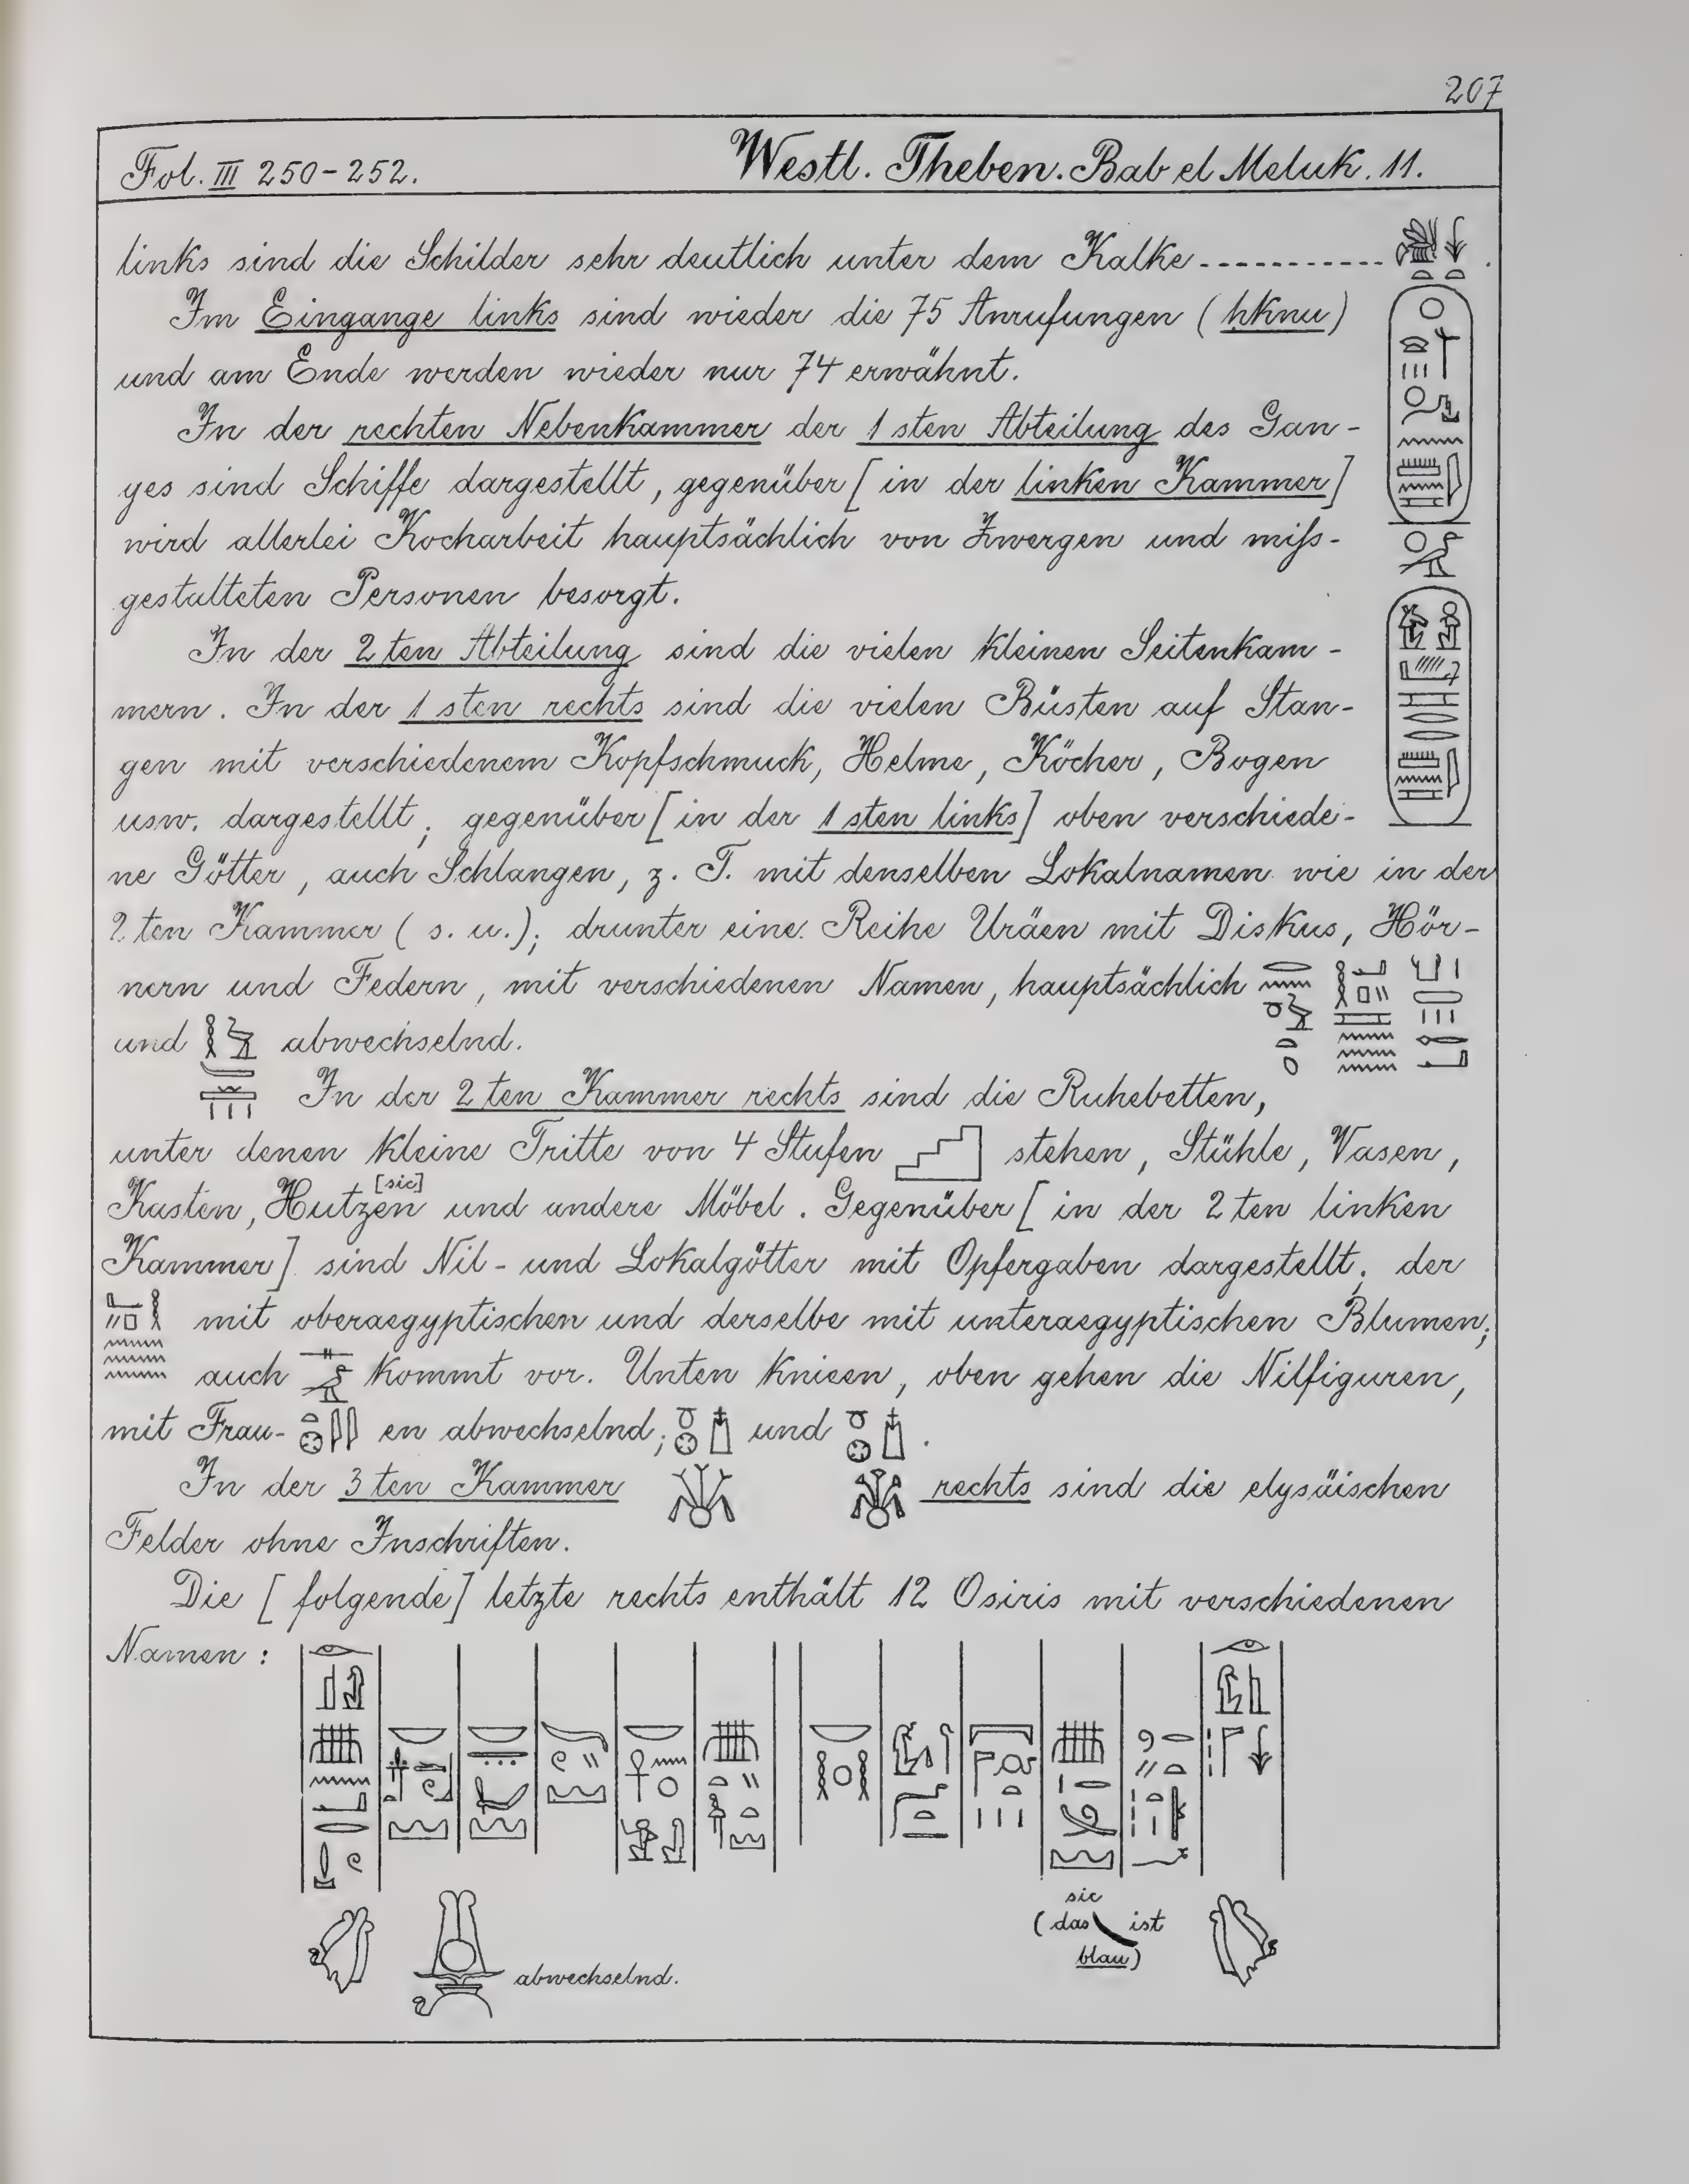 207
Fol. III 250-252.
Westl. Theben. Bab el Meluk. 11.
links sind die Schilder sehr deutlich unter dem Kalke ............ .
Im Eingange links sind wieder die 75 Anrufungen (hknu)
und am Ende werden wieder nur 74 erwähnt.
In der rechten Nebenkammer der 1 sten Abteilung des Gan-
ges sind Schiffe dargestellt, gegenüber [in der linken Kammer]
wird allerlei Kocharbeit hauptsächlich von Zwergen und miss-
gestalteten Personen besorgt.
In der 2 ten Abteilung sind die vielen kleinen Seitenkam-
mern. In der 1 sten rechts sind die vielen Büsten auf Stan-
gen mit verschiedenem Kopfschmuck, Helme, Köcher, Bogen
usw. dargestellt; gegenüber [in der 1 sten links] oben verschiede-
ne Götter, auch Schlangen, z. T. mit denselben Lokalnamen wie in der
2 ten Kammer (s. u.); drunter eine Reihe Uräen mit Diskus, Hör-
nern und Federn, mit verschiedenen Namen, hauptsächlich
und abwechselnd.
In der 2 ten Kammer rechts sind die Ruhebetten,
unter denen kleine Tritte von 4 Stufen stehen, Stühle, Vasen,
Kasten, Hutzen [sic] und andere Möbel. Gegenüber [in der 2 ten linken
Kammer] sind Nil- und Lokalgötter mit Opfergaben dargestellt; der
mit oberaegyptischen und derselbe mit unteraegyptischen Blumen;
auch kommt vor. Unten knieen, oben gehen die Nilfiguren,
mit Frau- en abwechselnd; und .
In der 3 ten Kammer rechts sind die elysäischen
Felder ohne Inschriften.
Die [folgende] letzte rechts enthält 12 Osiris mit verschiedenen
Namen :
sic
(das ist
blau)
abwechselnd.